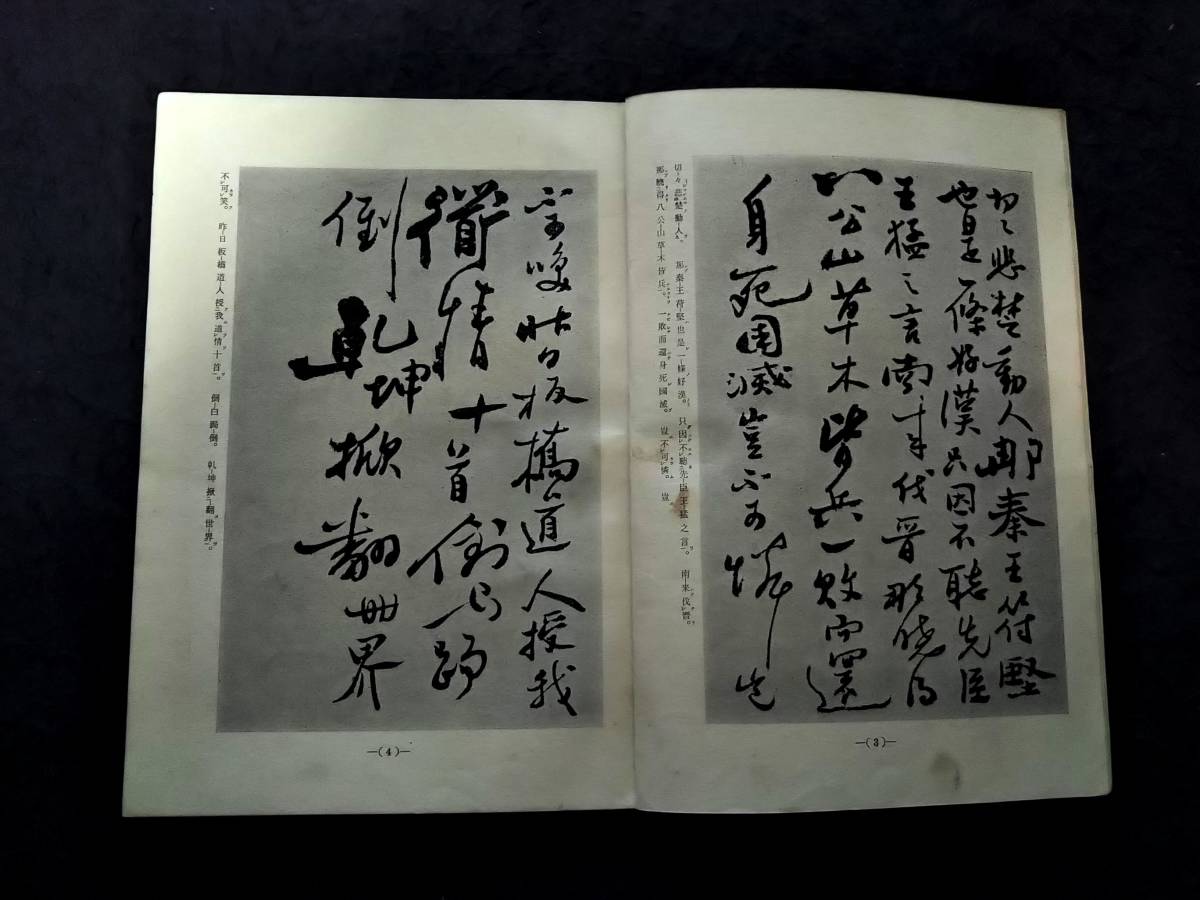 切々悲楚動人那秦王苻堅
也是一條好漢只因不聽先臣
王猛之言南来伐晋那曉得
八公山草木皆兵一敗而還
身死国滅豈不可憐豈
切々悲楚動人。 那秦王苻堅也是一條好漢。 只因不聽先臣王猛之言。 南来伐晋。
那曉得八公山草木皆兵。 一敗而還身死國滅。 豈不可憐。 豈
—(3)—
不可笑昨日板橋道人授我
道情十首倒也踢
倒乾坤掀翻世界
不可笑。 昨日板橋道人授我道情十首。 倒踢倒。 乾坤掀翻世界。
—(4)—